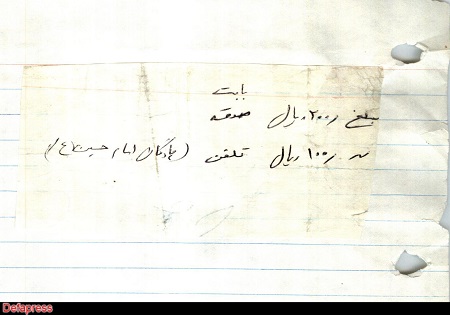 بابت
مبلغ ۲۰۰/ ریال صدقه
" ۱۰۰/ ریال تلفن (پادگان امام حسین (ع))
Defapress